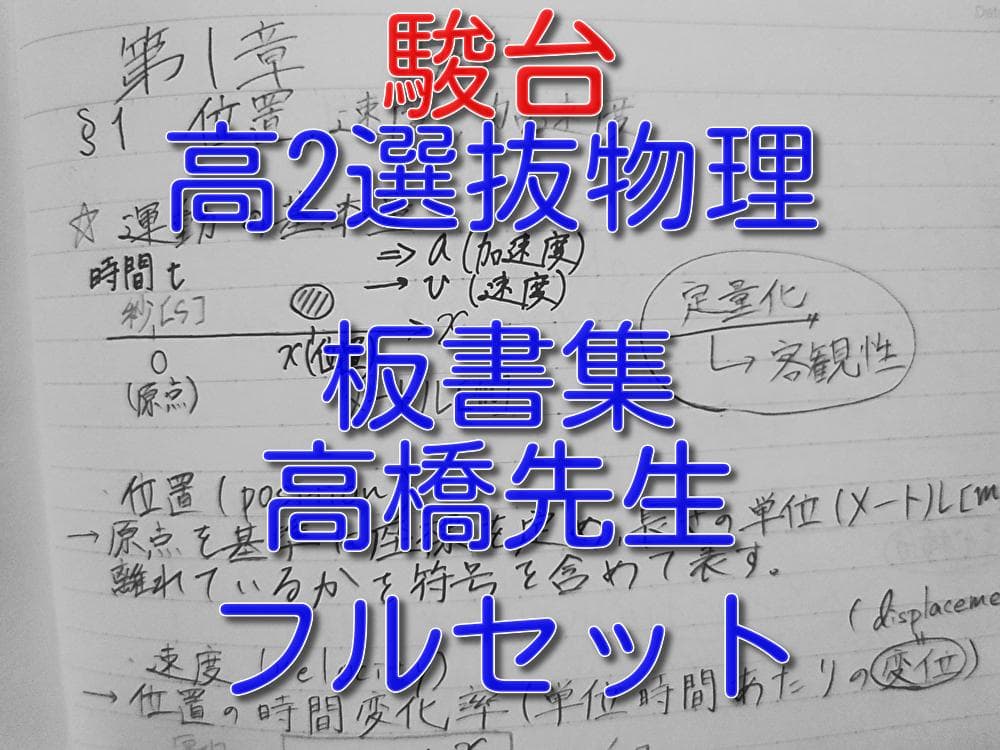 第1章
駿台
§1 位置 速度 加速度
高2選抜物理
☆ 運動の基本量
⇒ a (加速度)
時間 t
→ v (速度)
秒[s]
定量化
→ x
0
x(位置)
↳ 客観性
(原点)
板書集
位置 (position
高橋先生
→ 原点を基準 の単位 (メートル[m
離れているかを符号を含めて表す。
フルセット
(displaceme
速度 (velocity)
→ 位置の時間変化率 (単位時間あたりの変位)